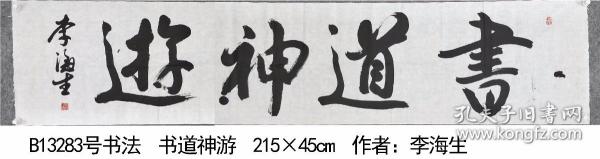 書道神遊
李海生
孔夫子旧书网
B13283号书法 书道神游 215×45cm 作者：李海生